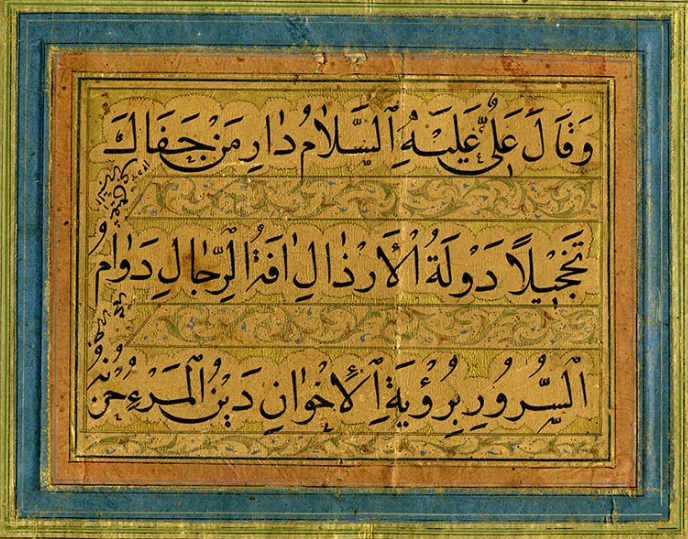 وَقَالَ عَلِىٌّ عَلَيْهِ ٱلسَّلَامُ دَارِ مَنْ جَفَاكَ
تَخْجِيلاً دَوْلَةُ الْأَرْذَالِ اٰفَةُ الرِّجَالِ دَوَامُ
السُّرُورِ بِرُؤْيَةِ الْإِخْوَانِ دَيْنُ الْمَرْءِ حُزْنُهُ